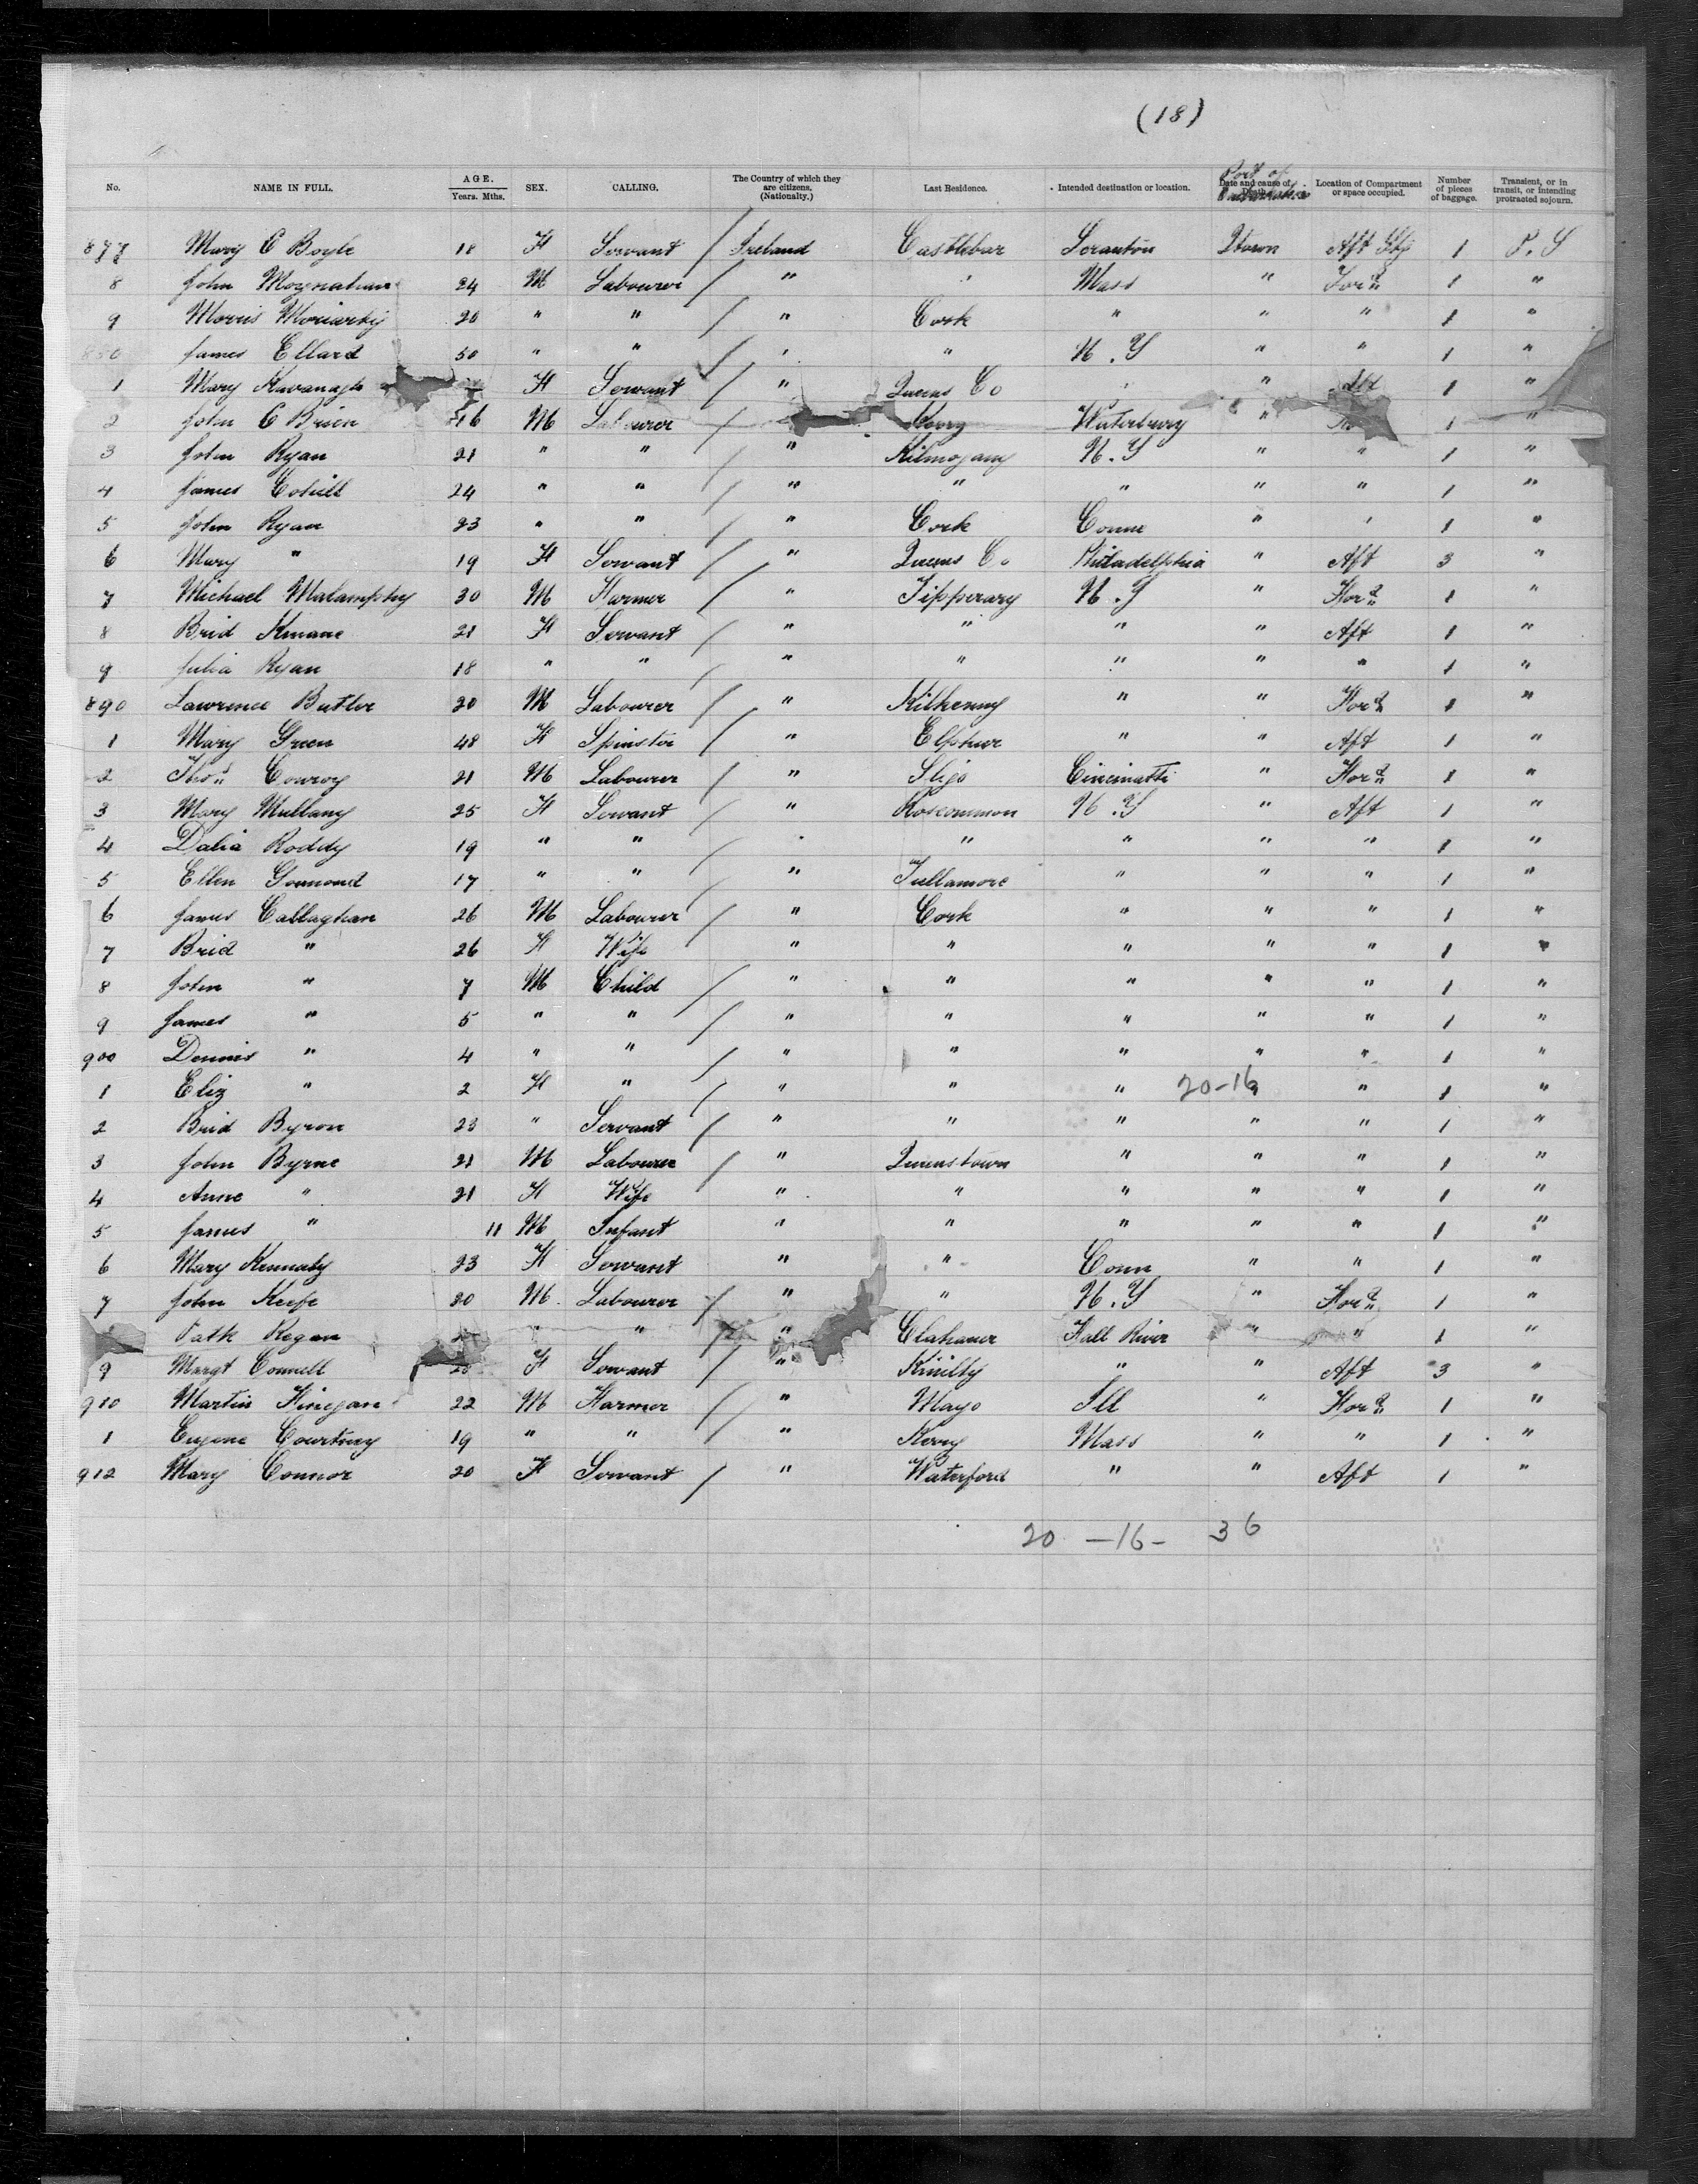 (18)
No. NAME IN FULL. AGE. Years. Mths. SEX. CALLING. The Country of which they are citizens. (Nationality.) Last Residence. Intended destination or location. Port of Date and cause of Location of Compartment or space occupied. Number of pieces of baggage. Transient, or in transit, or intending protracted sojourn.
877 Mary E Boyle 18 F Servant / Ireland Castlebar Scranton Qtown Aft Stg 1 P. S
8 John Moynahan 24 M Labourer / " " Mass " For'd 1 "
9 Morris Moriarty 20 " " / " Cork " " " 1 "
880 James Ellard 50 " " / " " N. Y " " 1 "
1 Mary Kavanagh F Servant / " Queens Co " " Aft 1 "
2 John O Brien 46 M Labourer / " Kerry Waterbury " 1 "
3 John Ryan 21 " " / " Kilmogany N. Y " " 1 "
4 James Cohill 24 " " / " " " " " 1 "
5 John Ryan 23 " " / " Cork Conn " " 1 "
6 Mary " 19 F Servant / " Queens Co Philadelphia " Aft 3 "
7 Michael Malamphy 30 M Farmer / " Tipperary N. Y " For'd 1 "
8 Brid Kinane 21 F Servant / " " " " Aft 1 "
9 Julia Ryan 18 " " / " " " " " 1 "
890 Lawrence Butler 20 M Labourer / " Kilkenny " " For'd 1 "
1 Mary Green 48 F Spinster / " Elphur " " Aft 1 "
2 Tho's Conroy 21 M Labourer / " Sligo Cincinatti " For'd 1 "
3 Mary Mullany 25 F Servant / " Roscommon N. Y " Aft 1 "
4 Dalia Roddy 19 " " / " " " " " 1 "
5 Ellen Gormond 17 " " / " Tullamore " " " 1 "
6 James Callaghan 26 M Labourer / " Cork " " " 1 "
7 Brid " 26 F Wife " " " " " 1 "
8 John " 7 M Child / " " " " " 1 "
9 James " 5 " " / " " " " " 1 "
900 Dennis " 4 " " / " " " " " 1 "
1 Eliz " 2 F " / " " " 20-16 " 1 "
2 Brid Byron 23 " Servant / " " " " " 1 "
3 John Byrne 21 M Labourer / " Queenstown " " " 1 "
4 Anne " 21 F Wife " " " " " 1 "
5 James " 11 M Infant " " " " " 1 "
6 Mary Kennedy 23 F Servant " " Conn " " 1 "
7 John Keefe 20 M Labourer / " " N. Y " For'd 1 "
Patk Regan " " / " Clahaner Fall River " " 1 "
9 Margt Connell F Servant / " " " Aft 3 "
910 Martin Finegan 22 M Farmer / " Mayo Ill " For'd 1 "
1 Eugene Courtney 19 " " / " Kerry Mass " " 1 "
912 Mary Connor 20 F Servant / " Waterford " " Aft 1 "
20 - 16 - 36